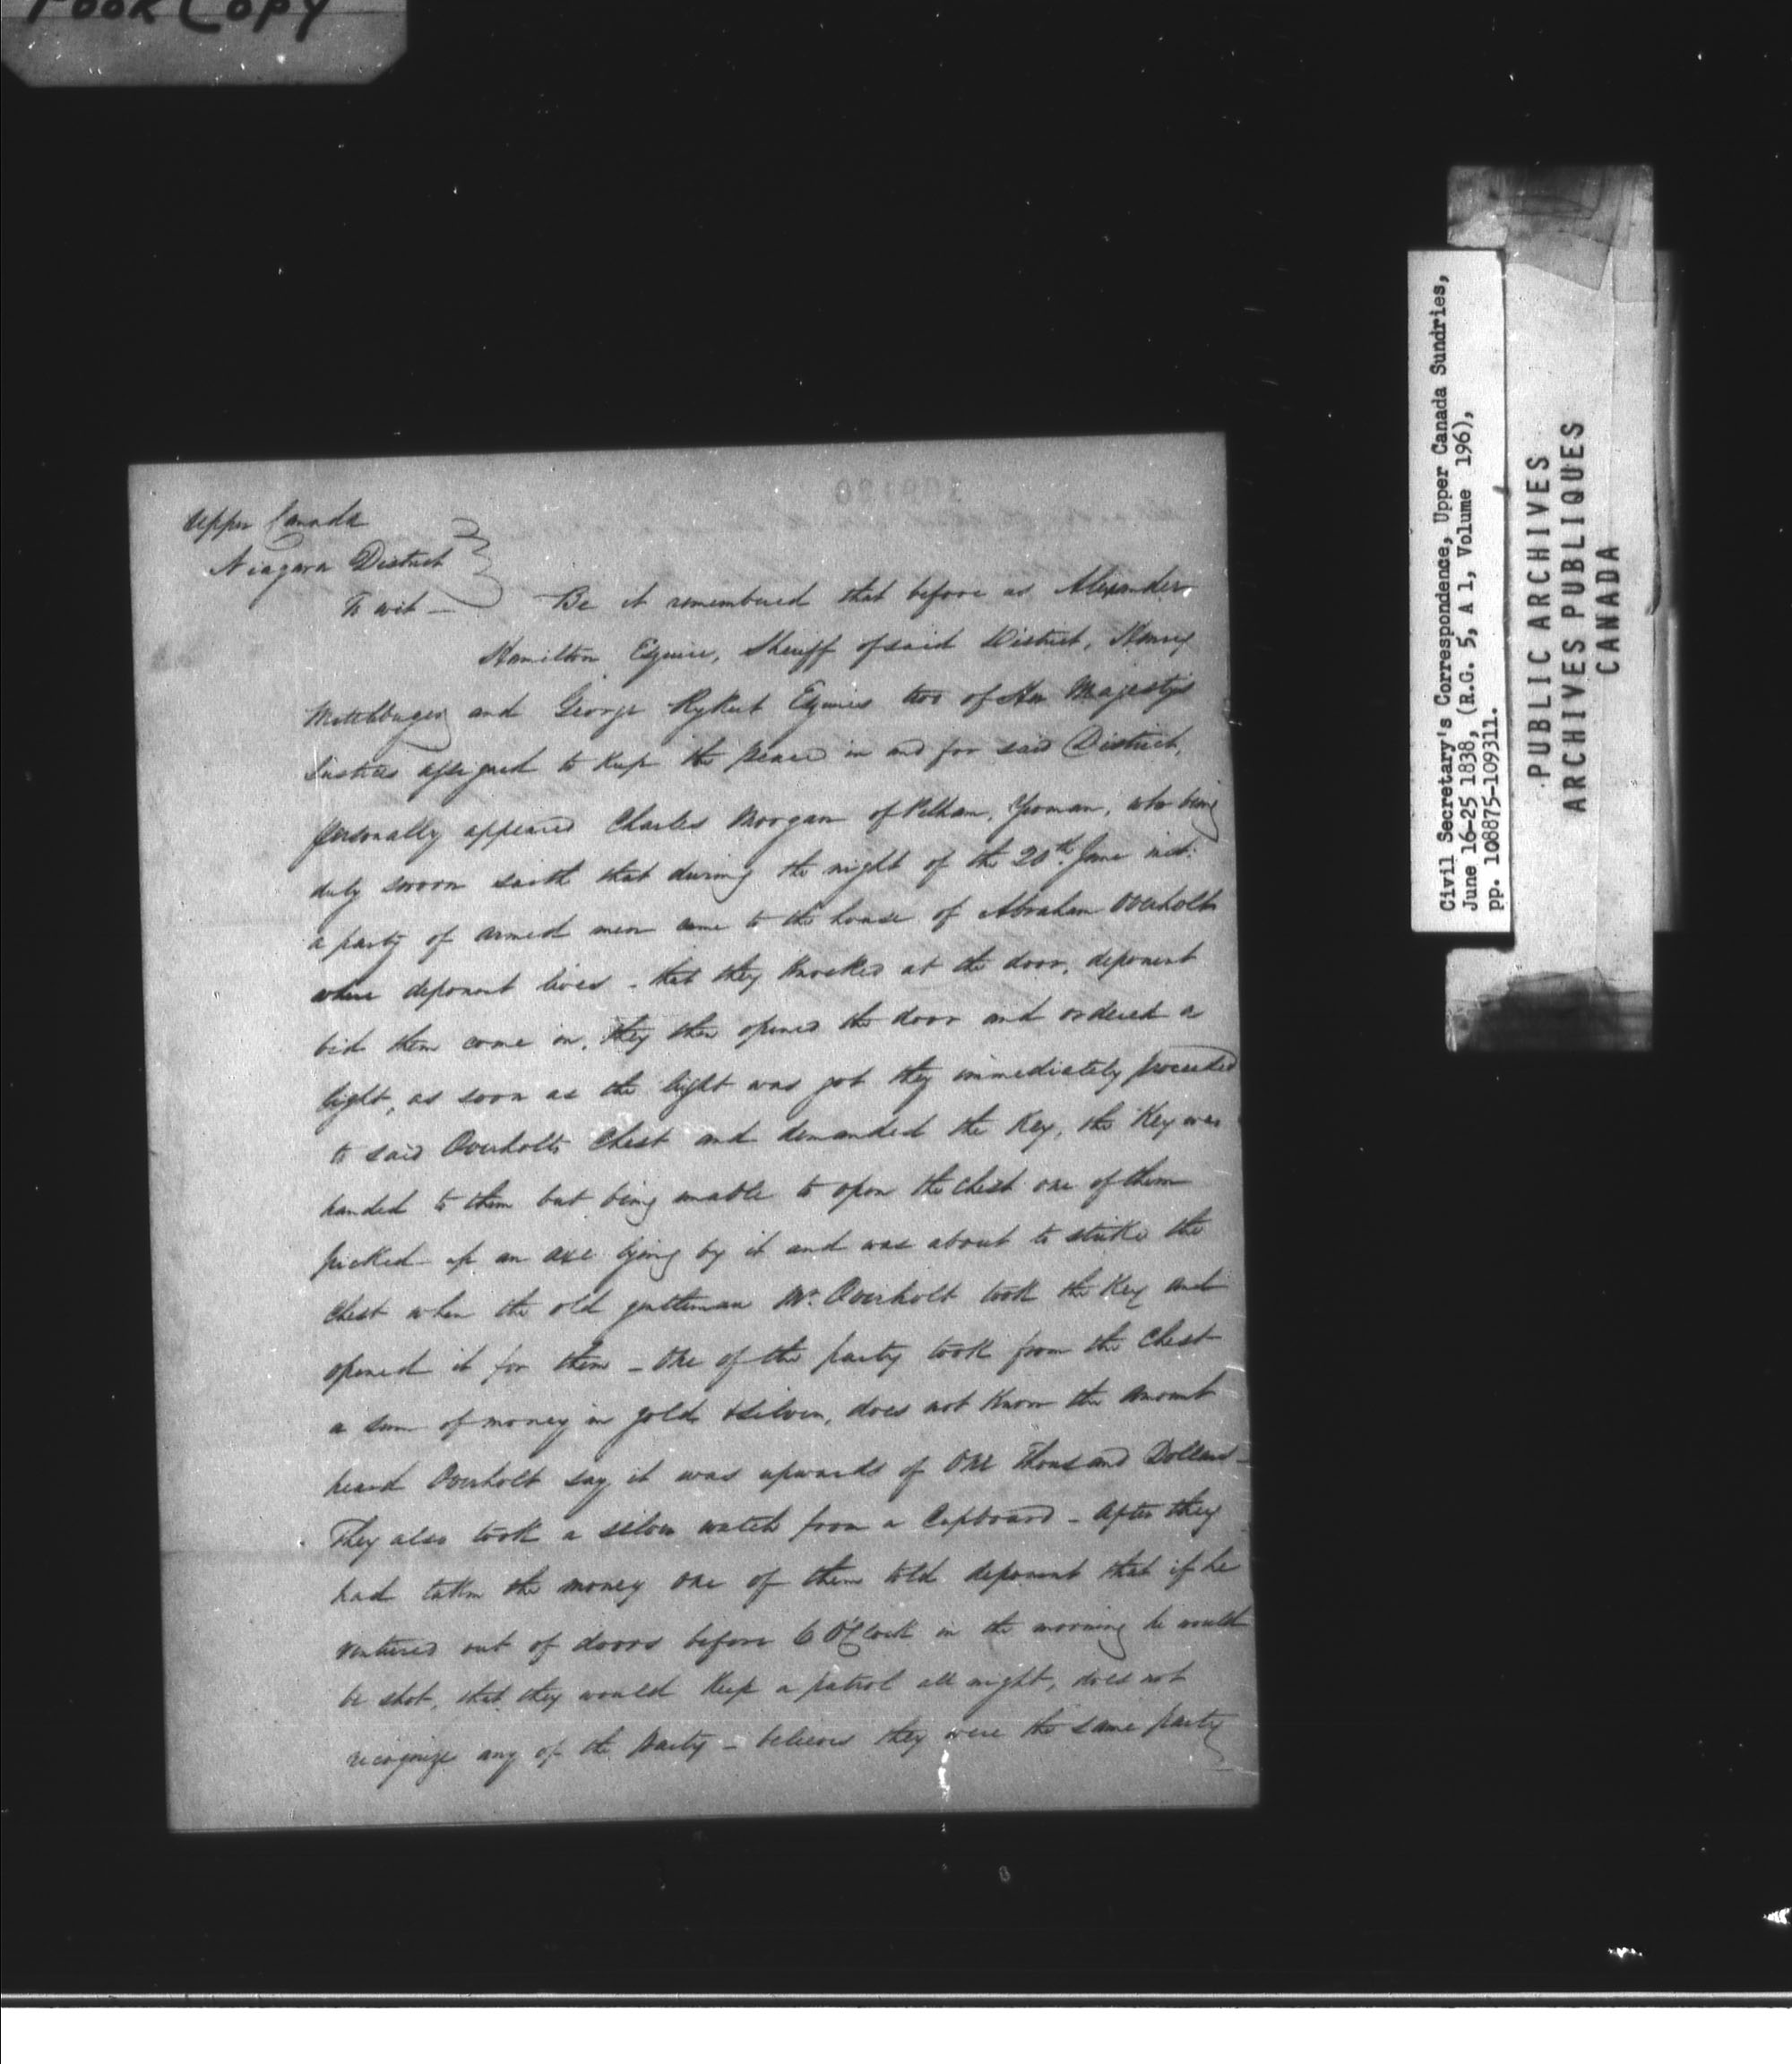 Poor Copy
Upper Canada
Niagara District
To wit — Be it remembered that before us Alexander
Hamilton Esquire, Sheriff of said District, Henry
Mittleberger and George Rykert Esquires two of Her Majesty's
Justices assigned to keep the peace in and for said District,
personally appeared Charles Morgan of Pelham, Yeoman, who being
duly sworn saith that during the night of the 20th June inst:
a party of armed men came to the house of Abraham Overholt
where deponent lives - that they knocked at the door, deponent
bid them come in, they then opened the door and ordered a
light, as soon as the light was got they immediately proceeded
to said Overholts Chest and demanded the Key, the Key was
handed to them but being unable to open the chest one of them
picked up an axe lying by it and was about to strike the
Chest when the old gentleman Mr. Overholt took the Key and
opened it for them - One of the party took from the Chest
a sum of money in gold & silver, does not know the amount
heard Overholt say it was upwards of One Thousand Dollars -
They also took a silver watch from a Cupboard - After they
had taken the money one of them told deponent that if he
ventured out of doors before 6 O'Clock in the morning he would
be shot, that they would keep a patrol all night, does not
recognize any of the party - believes they were the same party
Civil Secretary's Correspondence, Upper Canada Sundries,
June 16-25 1838, (R.G. 5, A 1, Volume 196),
pp. 108875-109311.
PUBLIC ARCHIVES
ARCHIVES PUBLIQUES
CANADA